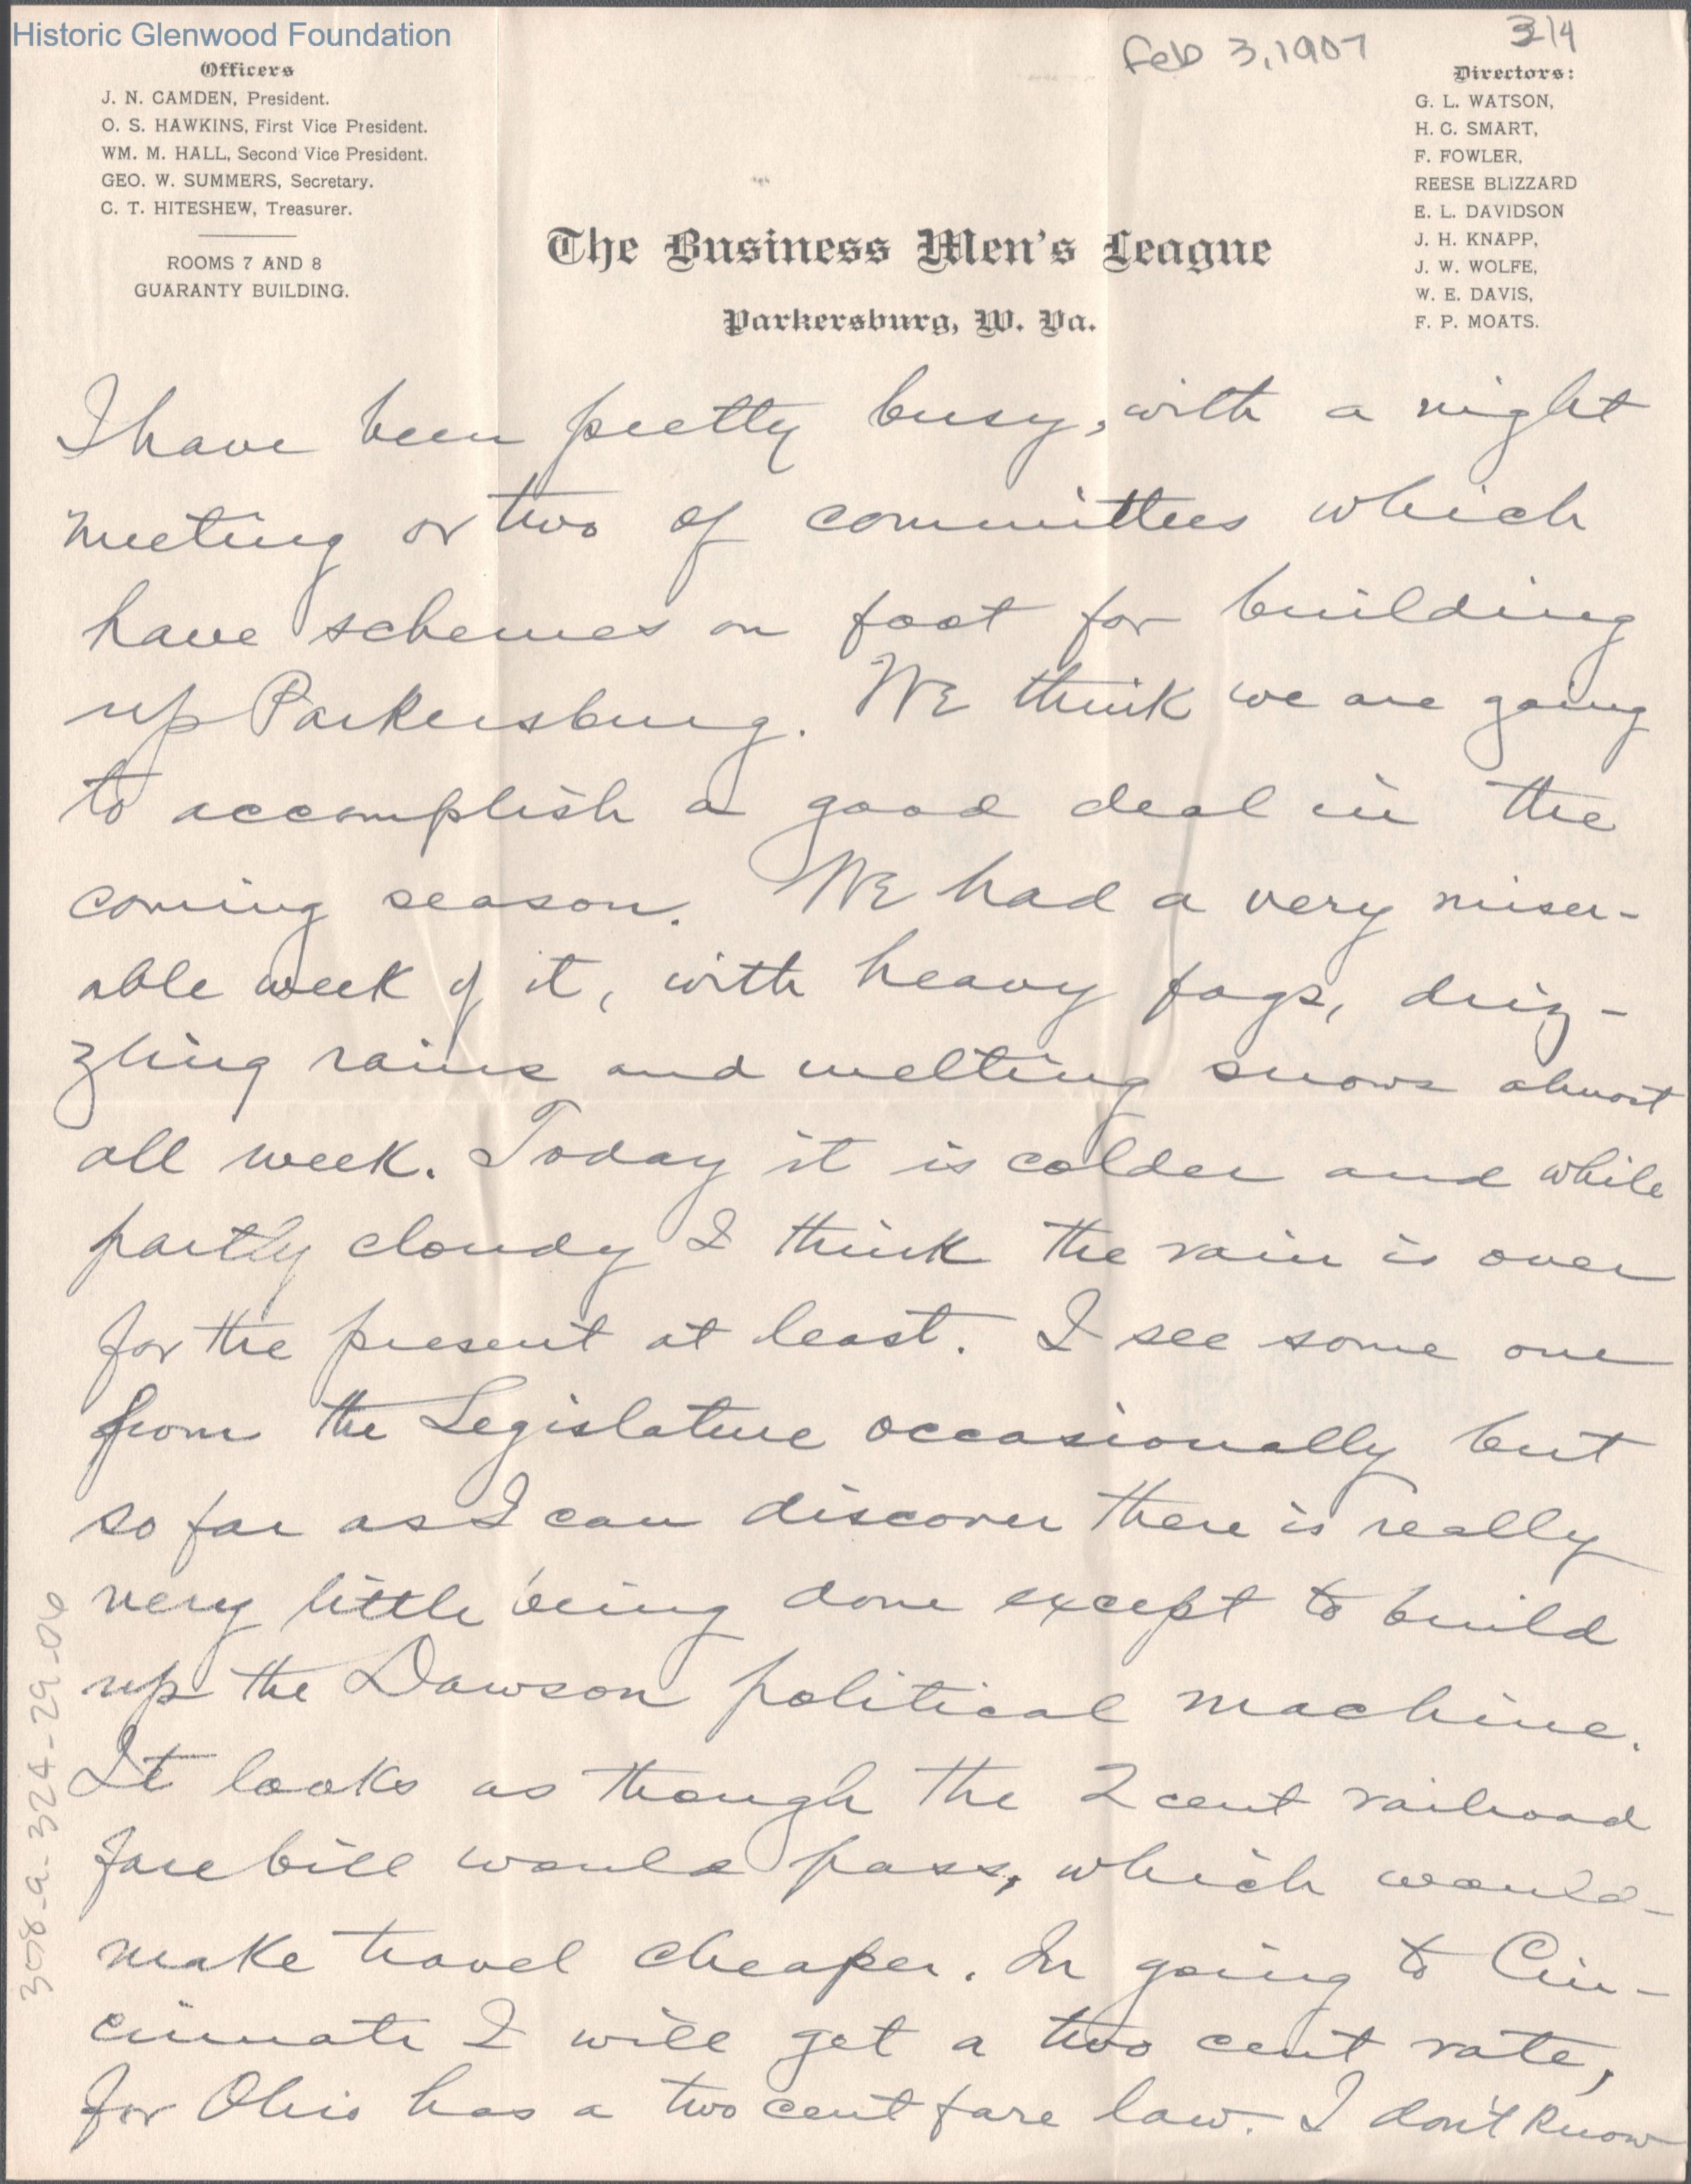 Historic Glenwood Foundation
Feb 3, 1907
3/4
Officers
J. N. CAMDEN, President.
O. S. HAWKINS, First Vice President.
WM. M. HALL, Second Vice President.
GEO. W. SUMMERS, Secretary.
C. T. HITESHEW, Treasurer.
ROOMS 7 AND 8
GUARANTY BUILDING.
Directors:
G. L. WATSON,
H. C. SMART,
F. FOWLER,
REESE BLIZZARD
E. L. DAVIDSON
J. H. KNAPP,
J. W. WOLFE,
W. E. DAVIS,
F. P. MOATS.
The Business Men's League
Parkersburg, W. Va.
I have been pretty busy, with a night
meeting or two of committees which
have schemes on foot for building
up Parkersburg. We think we are going
to accomplish a good deal in the
coming season. We had a very miser-
able week of it, with heavy fogs, driz-
zling rains and melting snows almost
all week. Today it is colder and while
partly cloudy I think the rain is over
for the present at least. I see some one
from the Legislature occasionally but
so far as I can discover there is really
very little being done except to build
up the Dawson political machine.
It looks as though the 2 cent railroad
fare bill would pass, which would
make travel cheaper. In going to Cin-
cinnati I will get a two cent rate,
for Ohio has a two cent fare law. I don't know
308-a-324-29-06